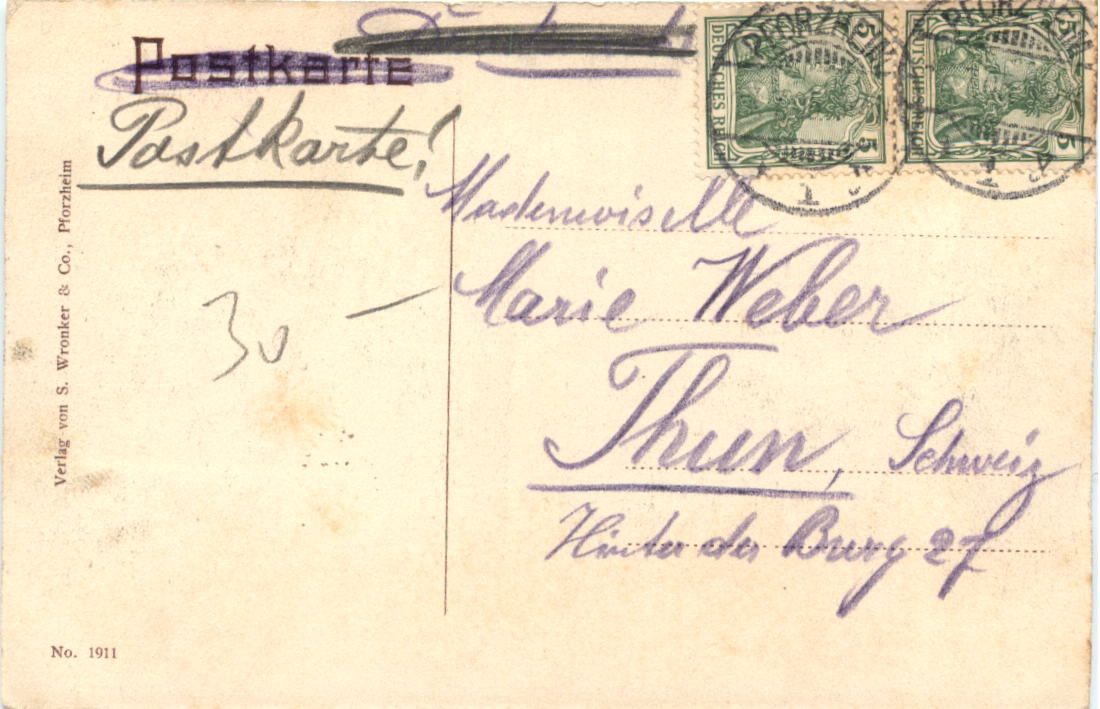 Postkarte
Postkarte!
Mademoiselle
Marie Weber
Thun, Schweiz
Hinter der Burg 27
30 —
Verlag von S. Wronker & Co., Pforzheim
No. 1911
DEUTSCHES REICH
5
5
PFORZHEIM
1
DEUTSCHES REICH
5
5
PFORZHEIM
1